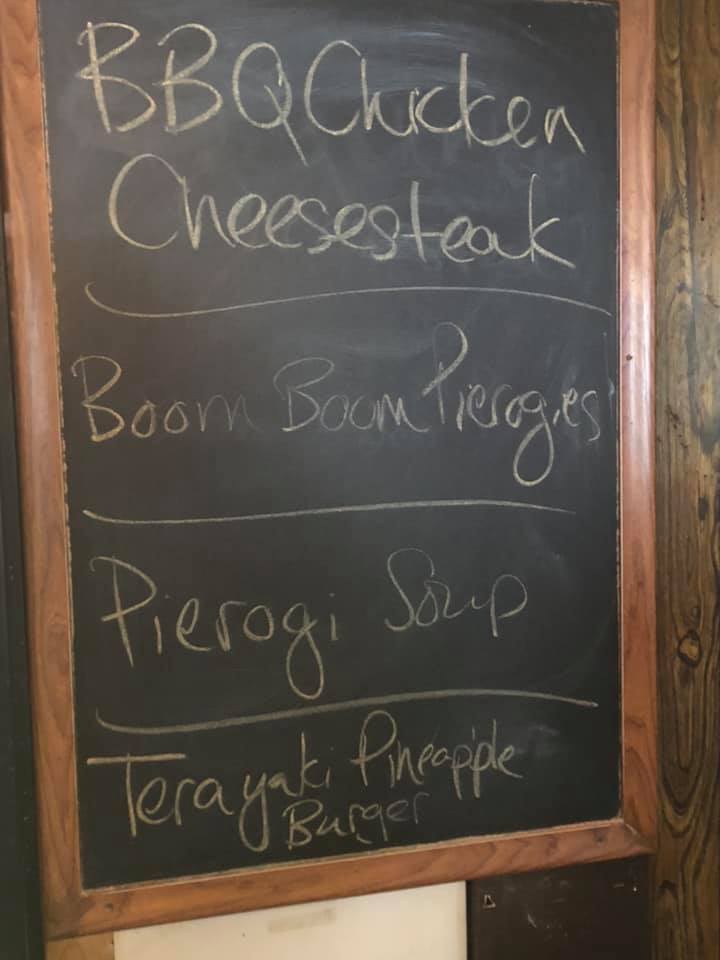 BBQ Chicken
Cheesesteak
Boom Boom Pierogies
Pierogi Soup
Terayaki Pineapple
Burger